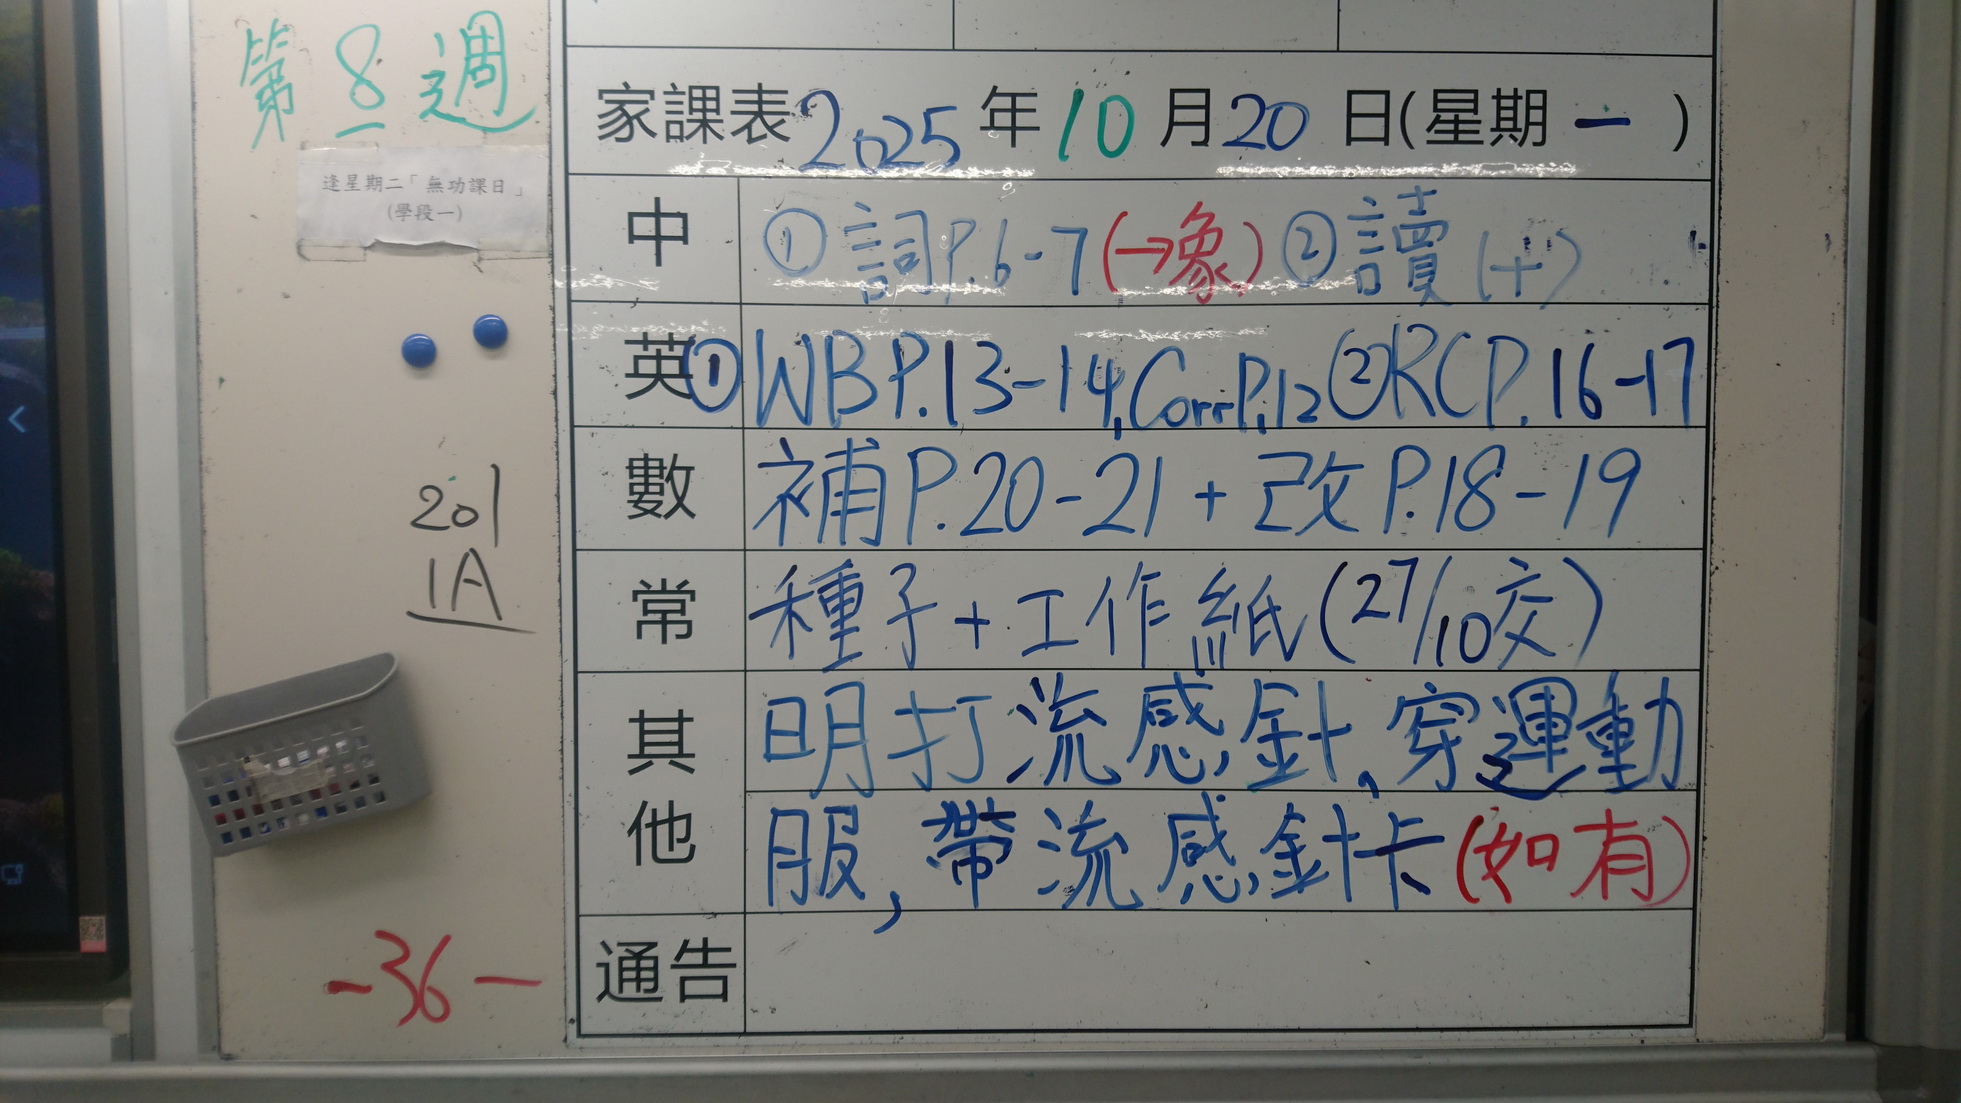 第8週
逢星期二「無功課日」
(學段一)
201
1A
-36-
家課表2025年10月20日(星期一)
中 ①詞P.6-7(→象)②讀(十)
英 ①WBP.13-14,CorrP.12②RCP.16-17
數 補P.20-21+改P.18-19
常 種子+工作紙(27/10交)
其他 明打流感針,穿運動
服,帶流感針卡(如有)
通告